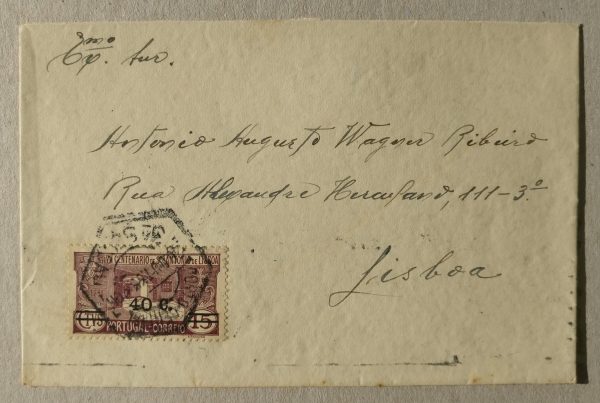 Exmo Snr.
Antonio Augusto Wagner Ribeiro
Rua Alexandre Herculano, 111-3º
Lisboa
CENTENARIO
40 C.
15 15
PORTUGAL-CORREIO